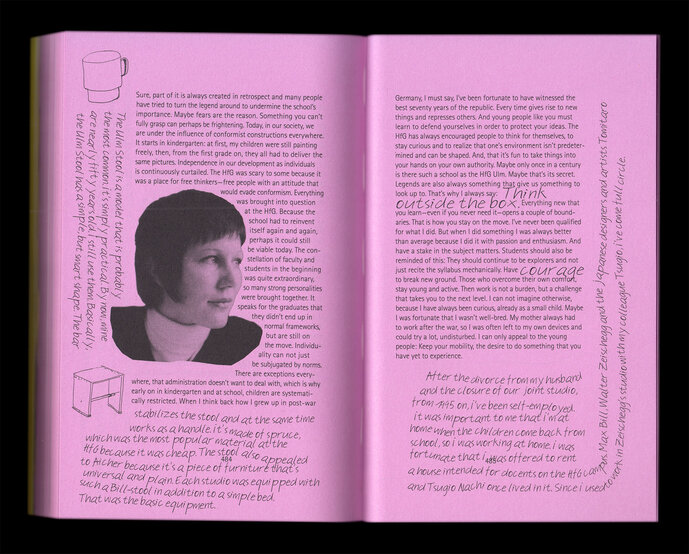 The Ulm Stool is a model that is probably
the most common. It's simply practical. By now, mine
are nearly fifty years old. I still use them. Basically,
the Ulm Stool has a simple, but smart shape. The bar
Sure, part of it is always created in retrospect and many people
have tried to turn the legend around to undermine the school's
importance. Maybe fears are the reason. Something you can't
fully grasp can perhaps be frightening. Today, in our society, we
are under the influence of conformist constructions everywhere.
It starts in kindergarten: at first, my children were still painting
freely, then, from the first grade on, they all had to deliver the
same pictures. Independence in our development as individuals
is continuously curtailed. The HfG was scary to some because it
was a place for free thinkers—free people with an attitude that
would evade conformism. Everything
was brought into question
at the HfG. Because the
school had to reinvent
itself again and again,
perhaps it could still
be viable today. The con-
stellation of faculty and
students in the beginning
was quite extraordinary,
so many strong personalities
were brought together. It
speaks for the graduates that
they didn't end up in
normal frameworks,
but are still on
the move. Individu-
ality can not just
be subjugated by norms.
There are exceptions every-
where, that administration doesn't want to deal with, which is why
early on in kindergarten and at school, children are systemati-
cally restricted. When I think back how I grew up in post-war
stabilizes the stool and at the same time
works as a handle. it's made of spruce,
which was the most popular material at the
HfG because it was cheap. The stool also appealed
to Aicher because it's a piece of furniture that's
universal and plain. Each studio was equipped with
such a Bill-stool in addition to a simple bed.
That was the basic equipment.
484
Germany, I must say, I've been fortunate to have witnessed the
best seventy years of the republic. Every time gives rise to new
things and represses others. And young people like you must
learn to defend yourselves in order to protect your ideas. The
HfG has always encouraged people to think for themselves, to
stay curious and to realize that one's environment isn't predeter-
mined and can be shaped. And, that it's fun to take things into
your hands on your own authority. Maybe only once in a century
is there such a school as the HfG Ulm. Maybe that's its secret.
Legends are also always something that give us something to
look up to. That's why I always say: Think
outside the box. Everything new that
you learn—even if you never need it—opens a couple of bound-
aries. That is how you stay on the move. I've never been qualified
for what I did. But when I did something I was always better
than average because I did it with passion and enthusiasm. And
have a stake in the subject matters. Students should also be
reminded of this: They should continue to be explorers and not
just recite the syllabus mechanically. Have courage
to break new ground. Those who overcome their own comfort,
stay young and active. Then work is not a burden, but a challenge
that takes you to the next level. I can not imagine otherwise,
because I have always been curious, already as a small child. Maybe
I was fortunate that I wasn't well-bred. My mother always had
to work after the war, so I was often left to my own devices and
could try a lot, undisturbed. I can only appeal to the young
people: Keep your mobility, the desire to do something that you
have yet to experience.
After the divorce from my husband
and the closure of our joint studio,
from 1975 on, i've been self-employed.
it was important to me that i'm at
home when the children come back from
school, so i was working at home. i was
fortunate that i was offered to rent
a house intended for docents on the HfG cam-
pus. Max Bill, Walter Zeischegg and the Japanese designers and artists Tomitaro
and Tsugio Nachi once lived in it. Since i used
to work in Zeischegg's studio with my colleague Tsugio, i've come full circle.